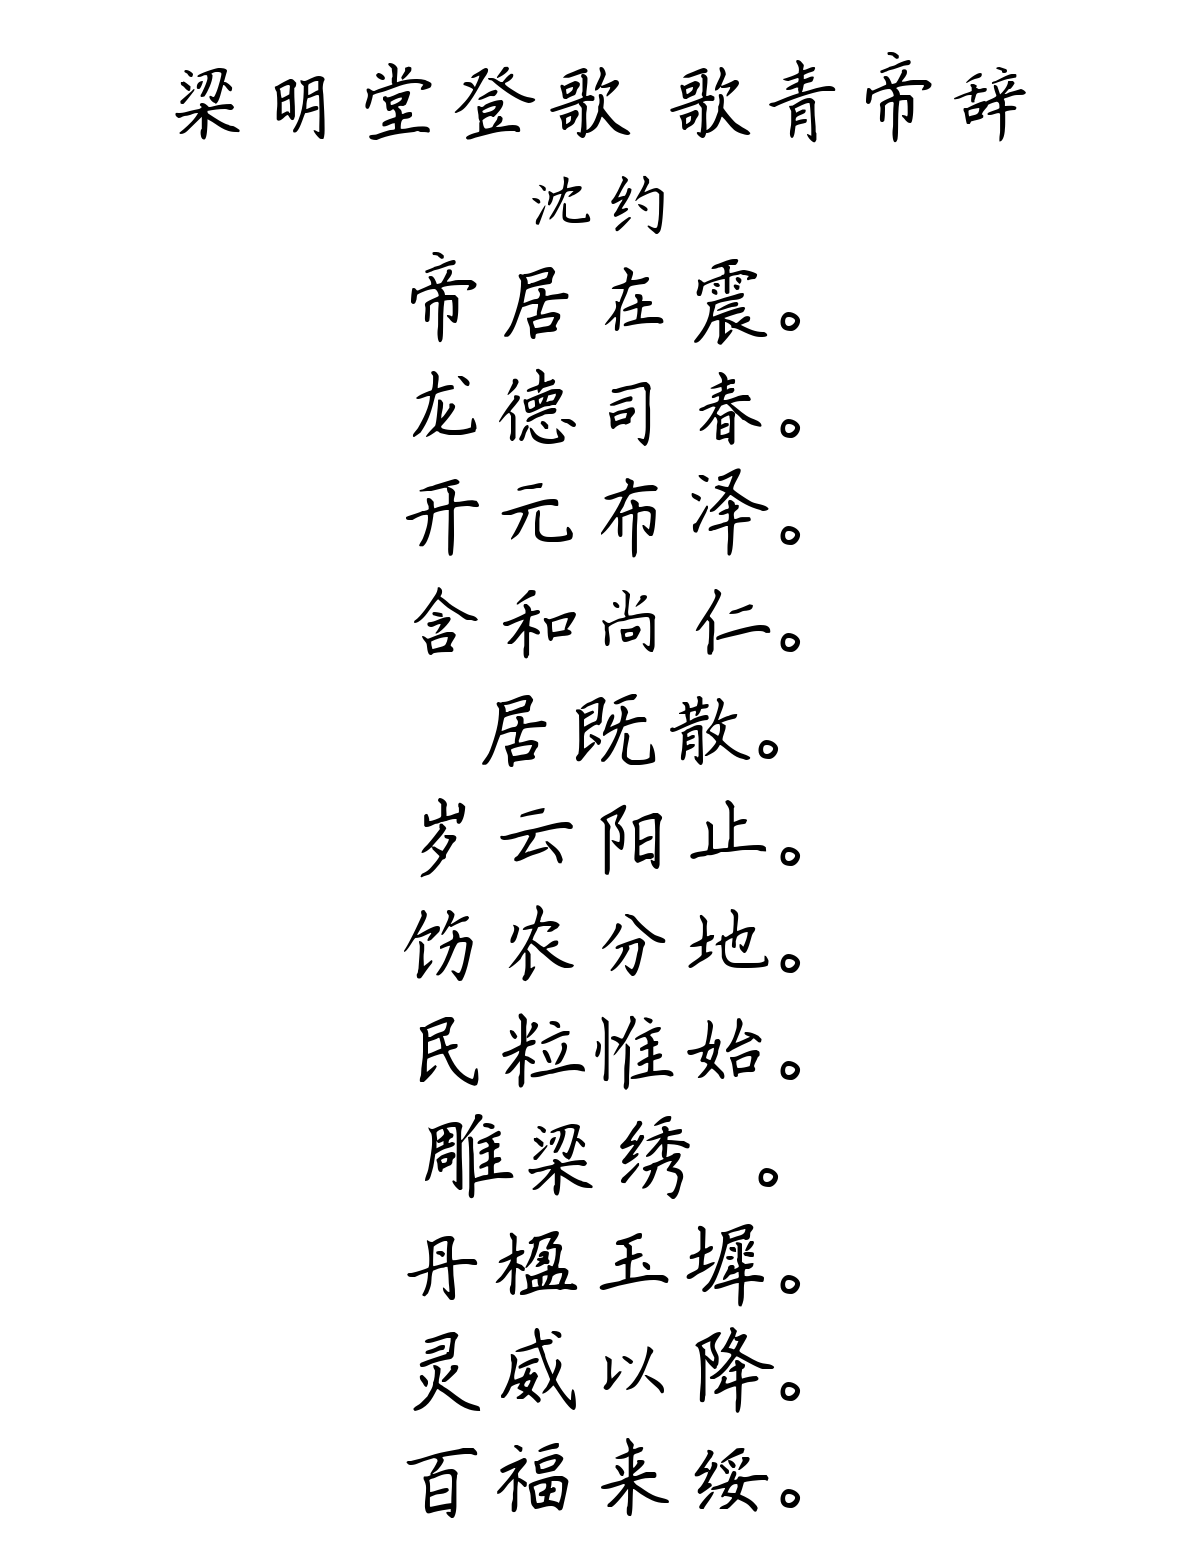 梁明堂登歌 歌青帝辞
沈约
帝居在震。
龙德司春。
开元布泽。
含和尚仁。
居既散。
岁云阳止。
饬农分地。
民粒惟始。
雕梁绣 。
丹楹玉墀。
灵威以降。
百福来绥。